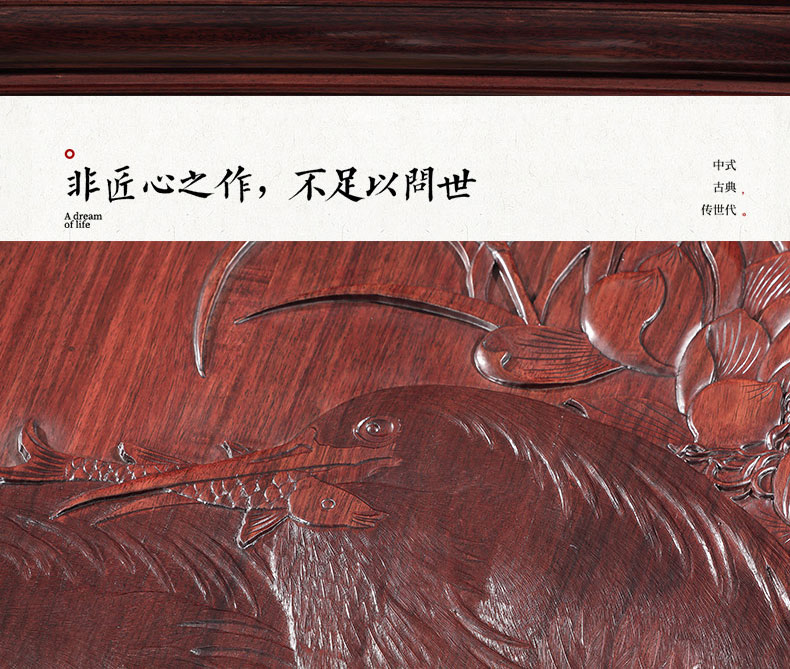 非匠心之作，不足以問世
A dream
of life
中式
古典，
传世代。